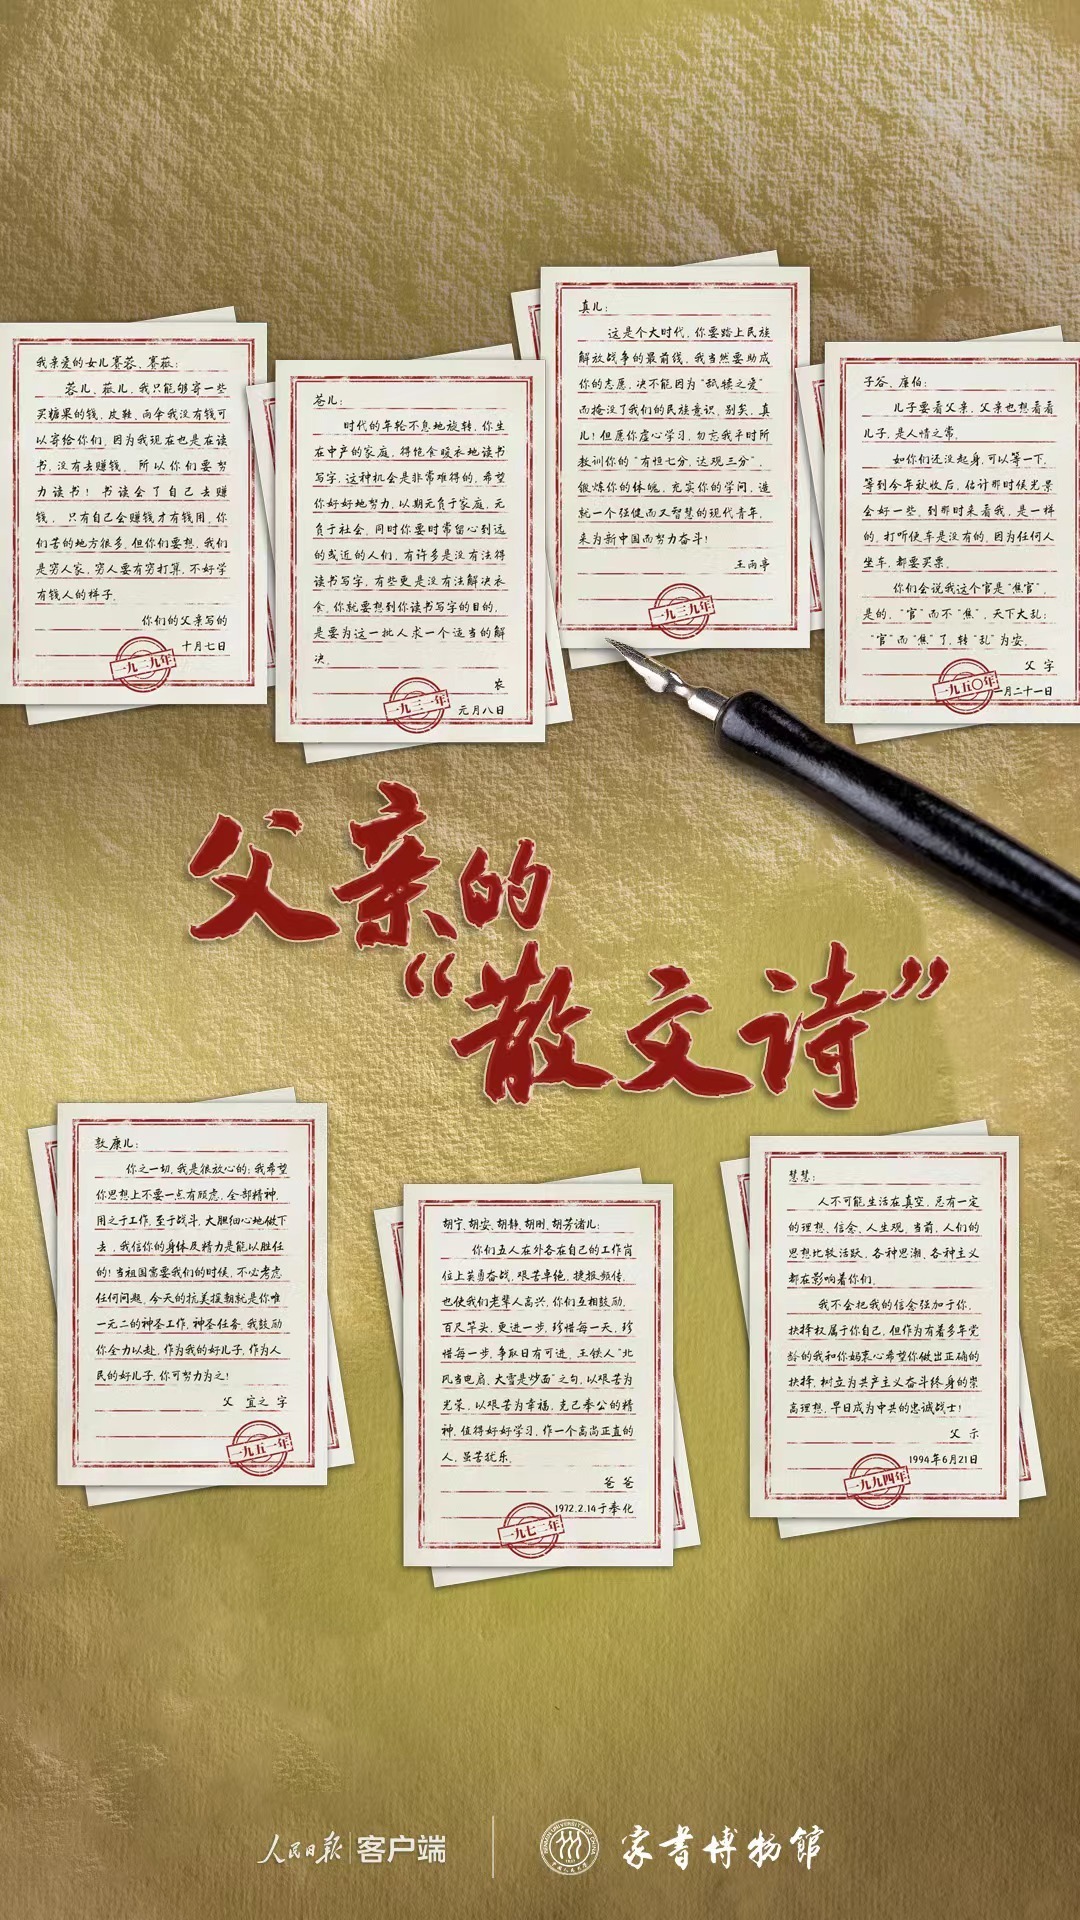 我亲爱的女儿赛蓉、赛菘：
蓉儿、菘儿，我只能够寄一些
买糖果的钱，皮鞋、雨伞我没有钱可
以寄给你们，因为我现在也是在读
书，没有去赚钱。所以你们要努
力读书！书读会了自己去赚
钱，只有自己会赚钱才有钱用。你
们苦的地方很多，但你们要想，我们
是穷人家，穷人要有穷打算，不好学
有钱人的样子。
你们的父亲写的
十月七日
一九二九年
苍儿：
时代的年轮不息地旋转，你生
在中产的家庭，得饱食暖衣地读书
写字，这种机会是非常难得的，希望
你好好地努力，以期无负于家庭，无
负于社会，同时你要时常留心到远
的或近的人们，有许多是没有法得
读书写字，有些更是没有法解决衣
食，你就要想到你读书写字的目的，
是要为这一批人求一个适当的解
决。
农
元月八日
一九三一年
真儿：
这是个大时代，你要踏上民族
解放战争的最前线，我当然要助成
你的志愿，决不能因为“舐犊之爱”
而掩没了我们的民族意识，别矣，真
儿！但愿你虚心学习，勿忘我平时所
教训你的“有恒七分，达观三分”，
锻炼你的体魄，充实你的学问，造
就一个强健而又智慧的现代青年，
来为新中国而努力奋斗！
王雨亭
一九三九年
子谷、廉伯：
儿子要看父亲，父亲也想看看
儿子，是人情之常。
如你们还没起身，可以等一下，
等到今年秋收后，估计那时候光景
会好一些，到那时来看我，是一样
的。打听便车是没有的，因为任何人
坐车，都要买票。
你们会说我这个官是“焦官”，
是的，“官”而不“焦”，天下大乱；
“官”而“焦”了，转“乱”为安。
父 字
一月二十一日
一九五〇年
父亲的
“散文诗”
敦康儿：
你之一切，我是很放心的；我希望
你思想上不要一点有顾虑，全部精神，
用之于工作，至于战斗，大胆细心地做下
去，我信你的身体及精力是能以胜任
的！当祖国需要我们的时候，不必考虑
任何问题，今天的抗美援朝就是你唯
一无二的神圣工作，神圣任务，我鼓励
你全力以赴，作为我的好儿子，作为人
民的好儿子，你可努力为之！
父 宜之 字
一九五一年
胡宁、胡安、胡静、胡刚、胡芳诸儿：
你们五人在外各在自己的工作岗
位上英勇奋战，艰苦卓绝，捷报频传，
也使我们老辈人高兴，你们互相鼓励，
百尺竿头，更进一步，珍惜每一天，珍
惜每一步，争取日有可进，王铁人“北
风当电扇，大雪是炒面”之句，以艰苦为
光荣，以艰苦为幸福，克己奉公的精
神，值得好好学习，作一个高尚正直的
人，虽苦犹乐。
爸 爸
1972.2.14于奉化
一九七二年
慧慧：
人不可能生活在真空，总有一定
的理想、信念、人生观，当前，人们的
思想比较活跃，各种思潮、各种主义
都在影响着你们。
我不会把我的信念强加于你，
抉择权属于你自己，但作为有着多年党
龄的我和你妈衷心希望你做出正确的
抉择，树立为共产主义奋斗终身的崇
高理想，早日成为中共的忠诚战士！
父 示
1994年6月21日
一九九四年
人民日报 客户端
家书博物馆